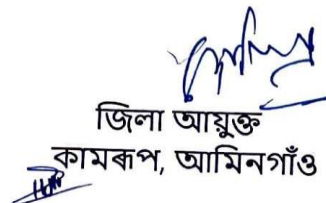 জিলা আয়ুক্ত
কামৰূপ, আমিনগাঁও